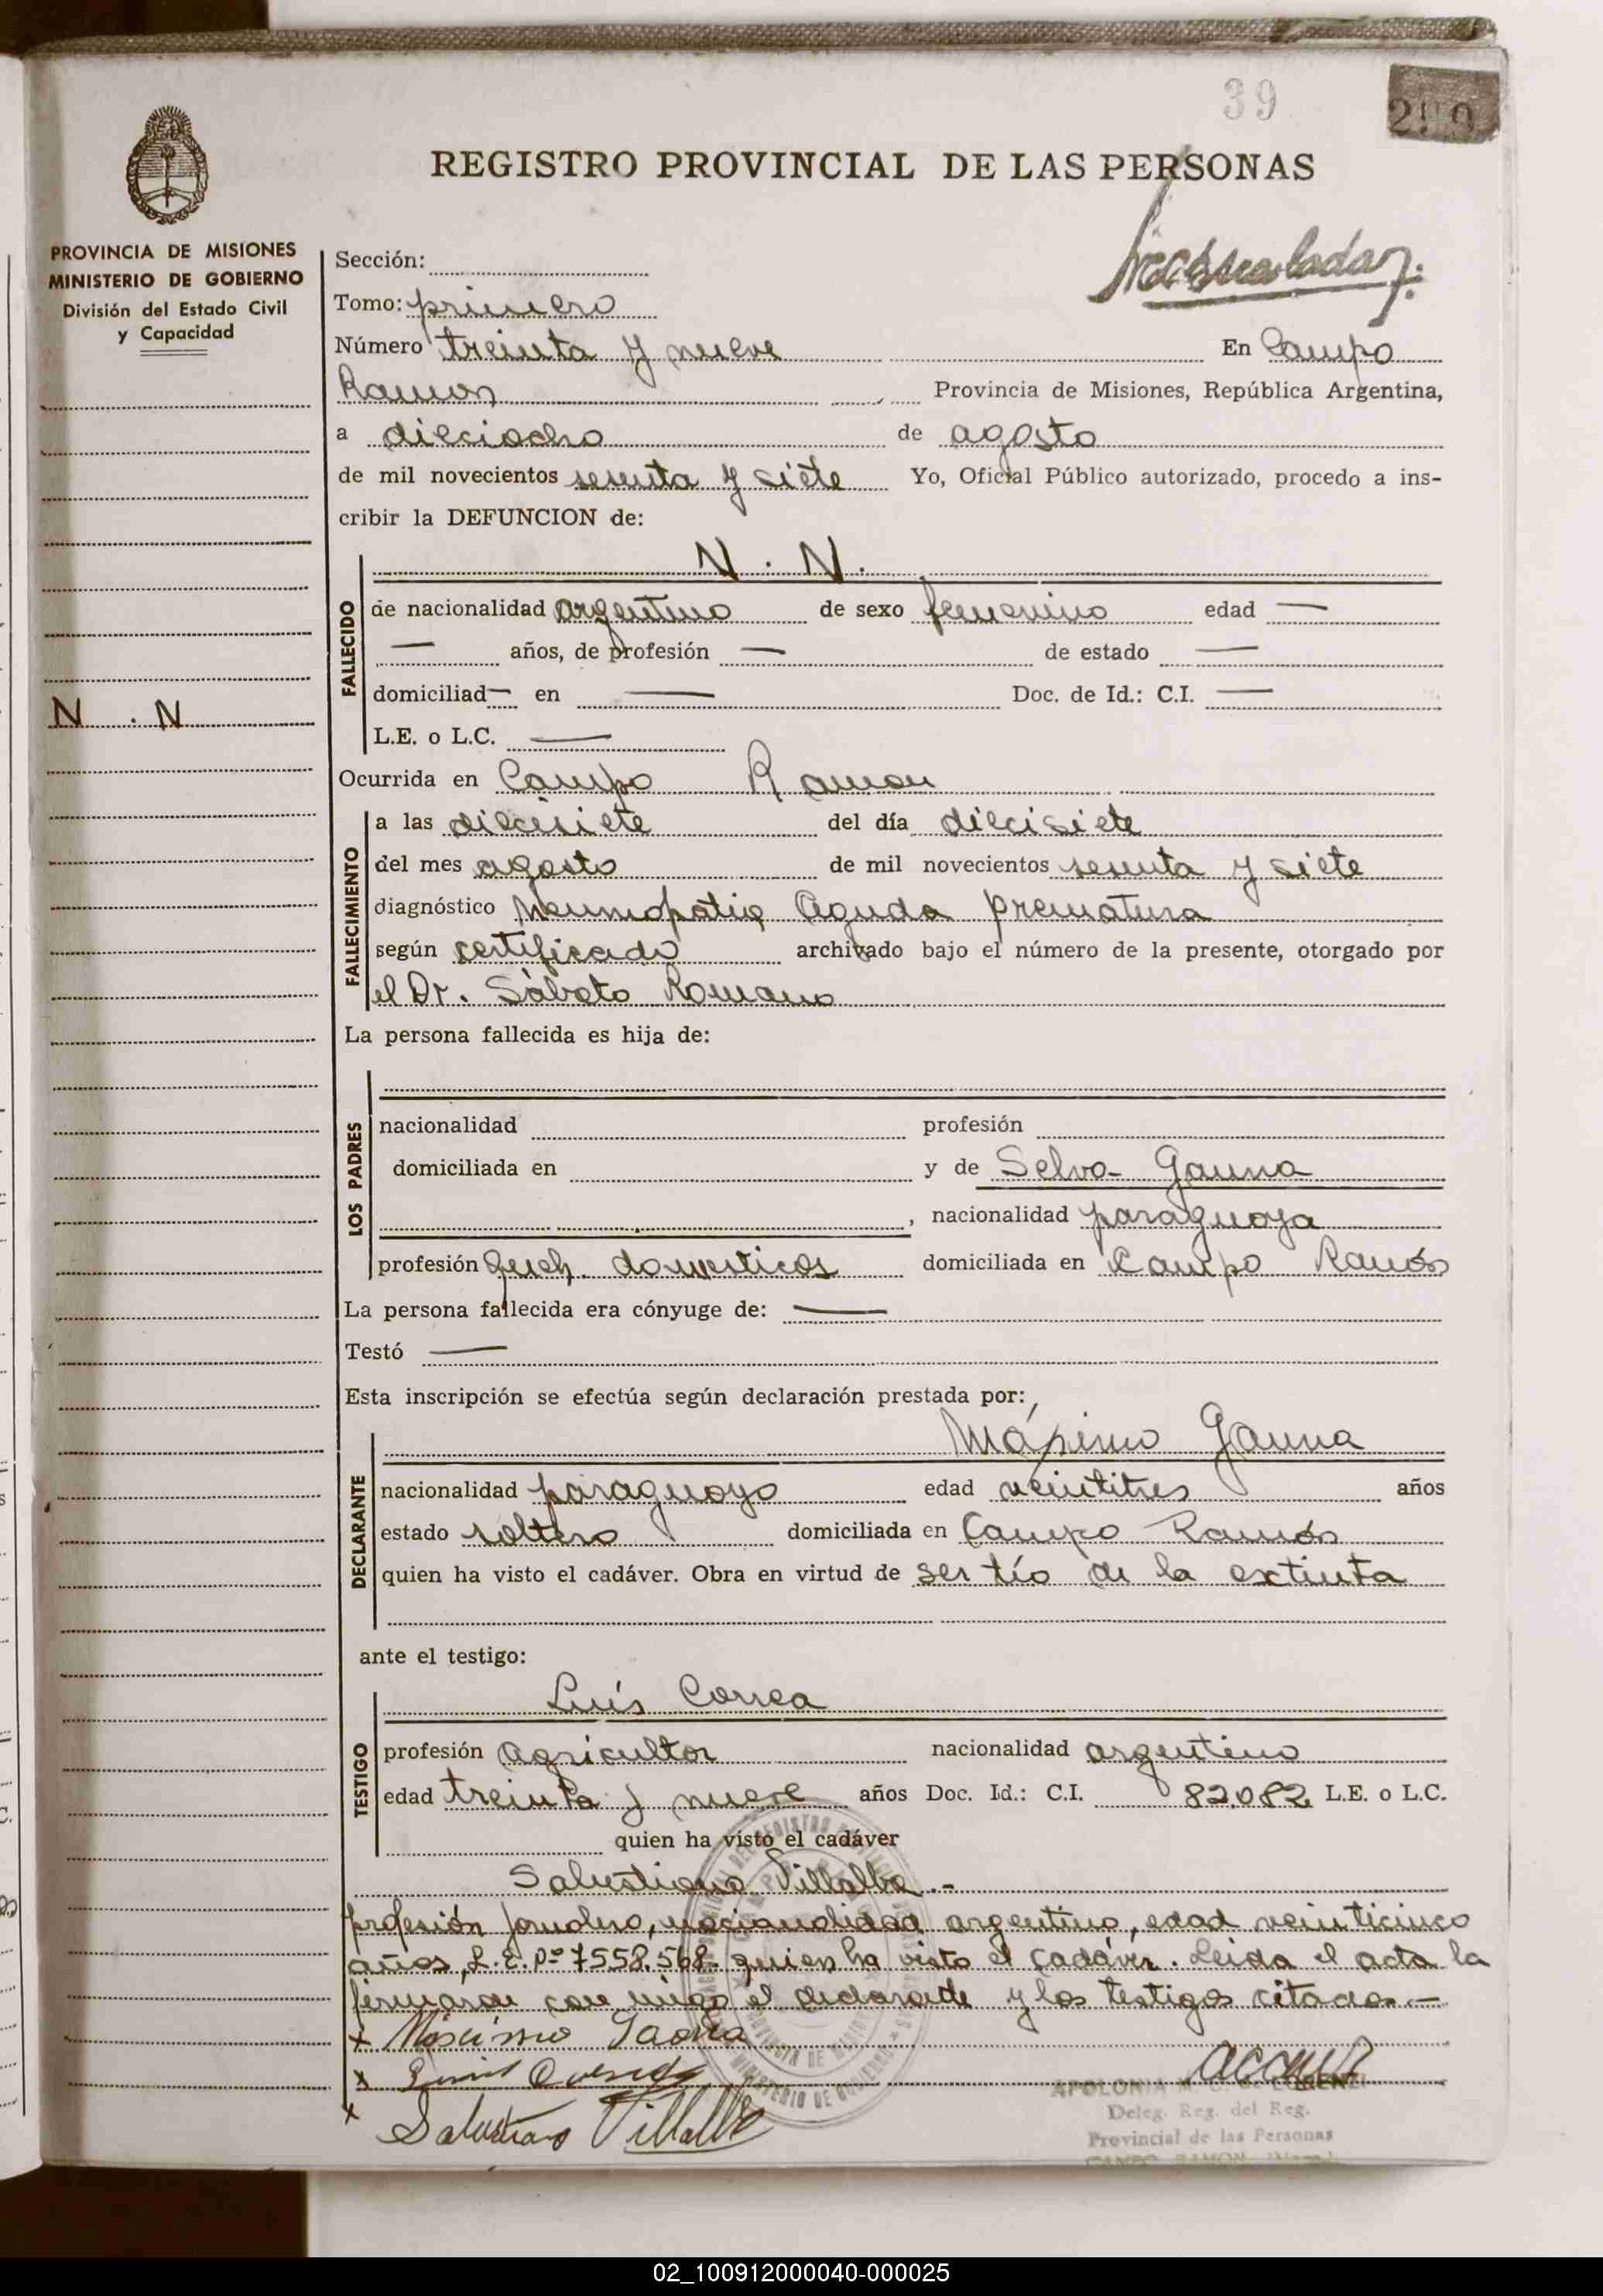 39
299
REGISTRO PROVINCIAL DE LAS PERSONAS
PROVINCIA DE MISIONES
MINISTERIO DE GOBIERNO
División del Estado Civil
y Capacidad
N . N
Sección:
Tomo: primero
Número treinta y nueve En Campo
Ramon Provincia de Misiones, República Argentina,
a dieciocho de agosto
de mil novecientos sesenta y siete Yo, Oficial Público autorizado, procedo a ins-
cribir la DEFUNCION de:
N . N.
FALLECIDO
de nacionalidad argentino de sexo femenino edad —
— años, de profesión — de estado —
domiciliad— en — Doc. de Id.: C.I. —
L.E. o L.C. —
Ocurrida en Campo Ramon
FALLECIMIENTO
a las diecisiete del día diecisiete
del mes agosto de mil novecientos sesenta y siete
diagnóstico Neumopatia Aguda Prematura
según certificado archivado bajo el número de la presente, otorgado por
el Dr. Sábato Romano
La persona fallecida es hija de:
LOS PADRES
nacionalidad profesión
domiciliada en y de Selva Gauna
, nacionalidad paraguaya
profesión Queh. domesticos domiciliada en Campo Ramón
La persona fallecida era cónyuge de: —
Testó —
Esta inscripción se efectúa según declaración prestada por:
Máximo Gauna
DECLARANTE
nacionalidad paraguayo edad veintitres años
estado soltero domiciliada en Campo Ramón
quien ha visto el cadáver. Obra en virtud de ser tío de la extinta
ante el testigo:
Luís Correa
TESTIGO
profesión agricultor nacionalidad argentino
edad treinta y nueve años Doc. Id.: C.I. 82.082 L.E. o L.C.
quien ha visto el cadáver
Salustiano Villalba.-
profesión jornalero, nacionalidad argentino, edad veinticinco
años, L.E. Nº 7558.568- quien ha visto el cadáver. Leida el acta la
firmaron con migo el declarante y los testigos citados.—
x Máximo Gaona
x
x Salustiano Villalba
APOLONIA
Deleg. Reg. del Reg.
Provincial de las Personas
CAMPO RAMON
02_100912000040-000025